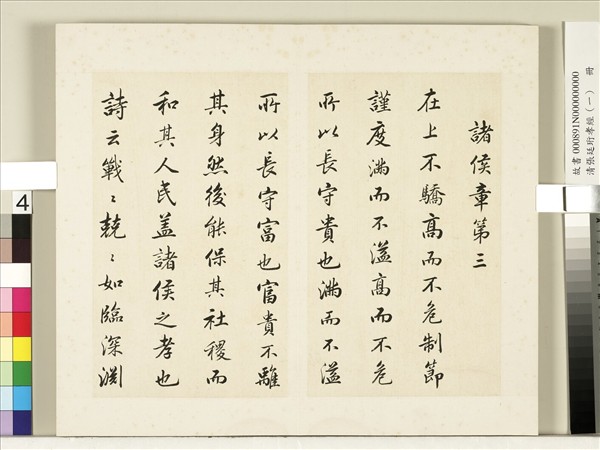 諸侯章第三
在上不驕高而不危制節
謹度滿而不溢高而不危
所以長守貴也滿而不溢
所以長守富也富貴不離
其身然後能保其社稷而
和其人民盖諸侯之孝也
詩云戰〻兢〻如臨深淵
故書000891N000000000
清張廷珩孝經(一) 冊
4